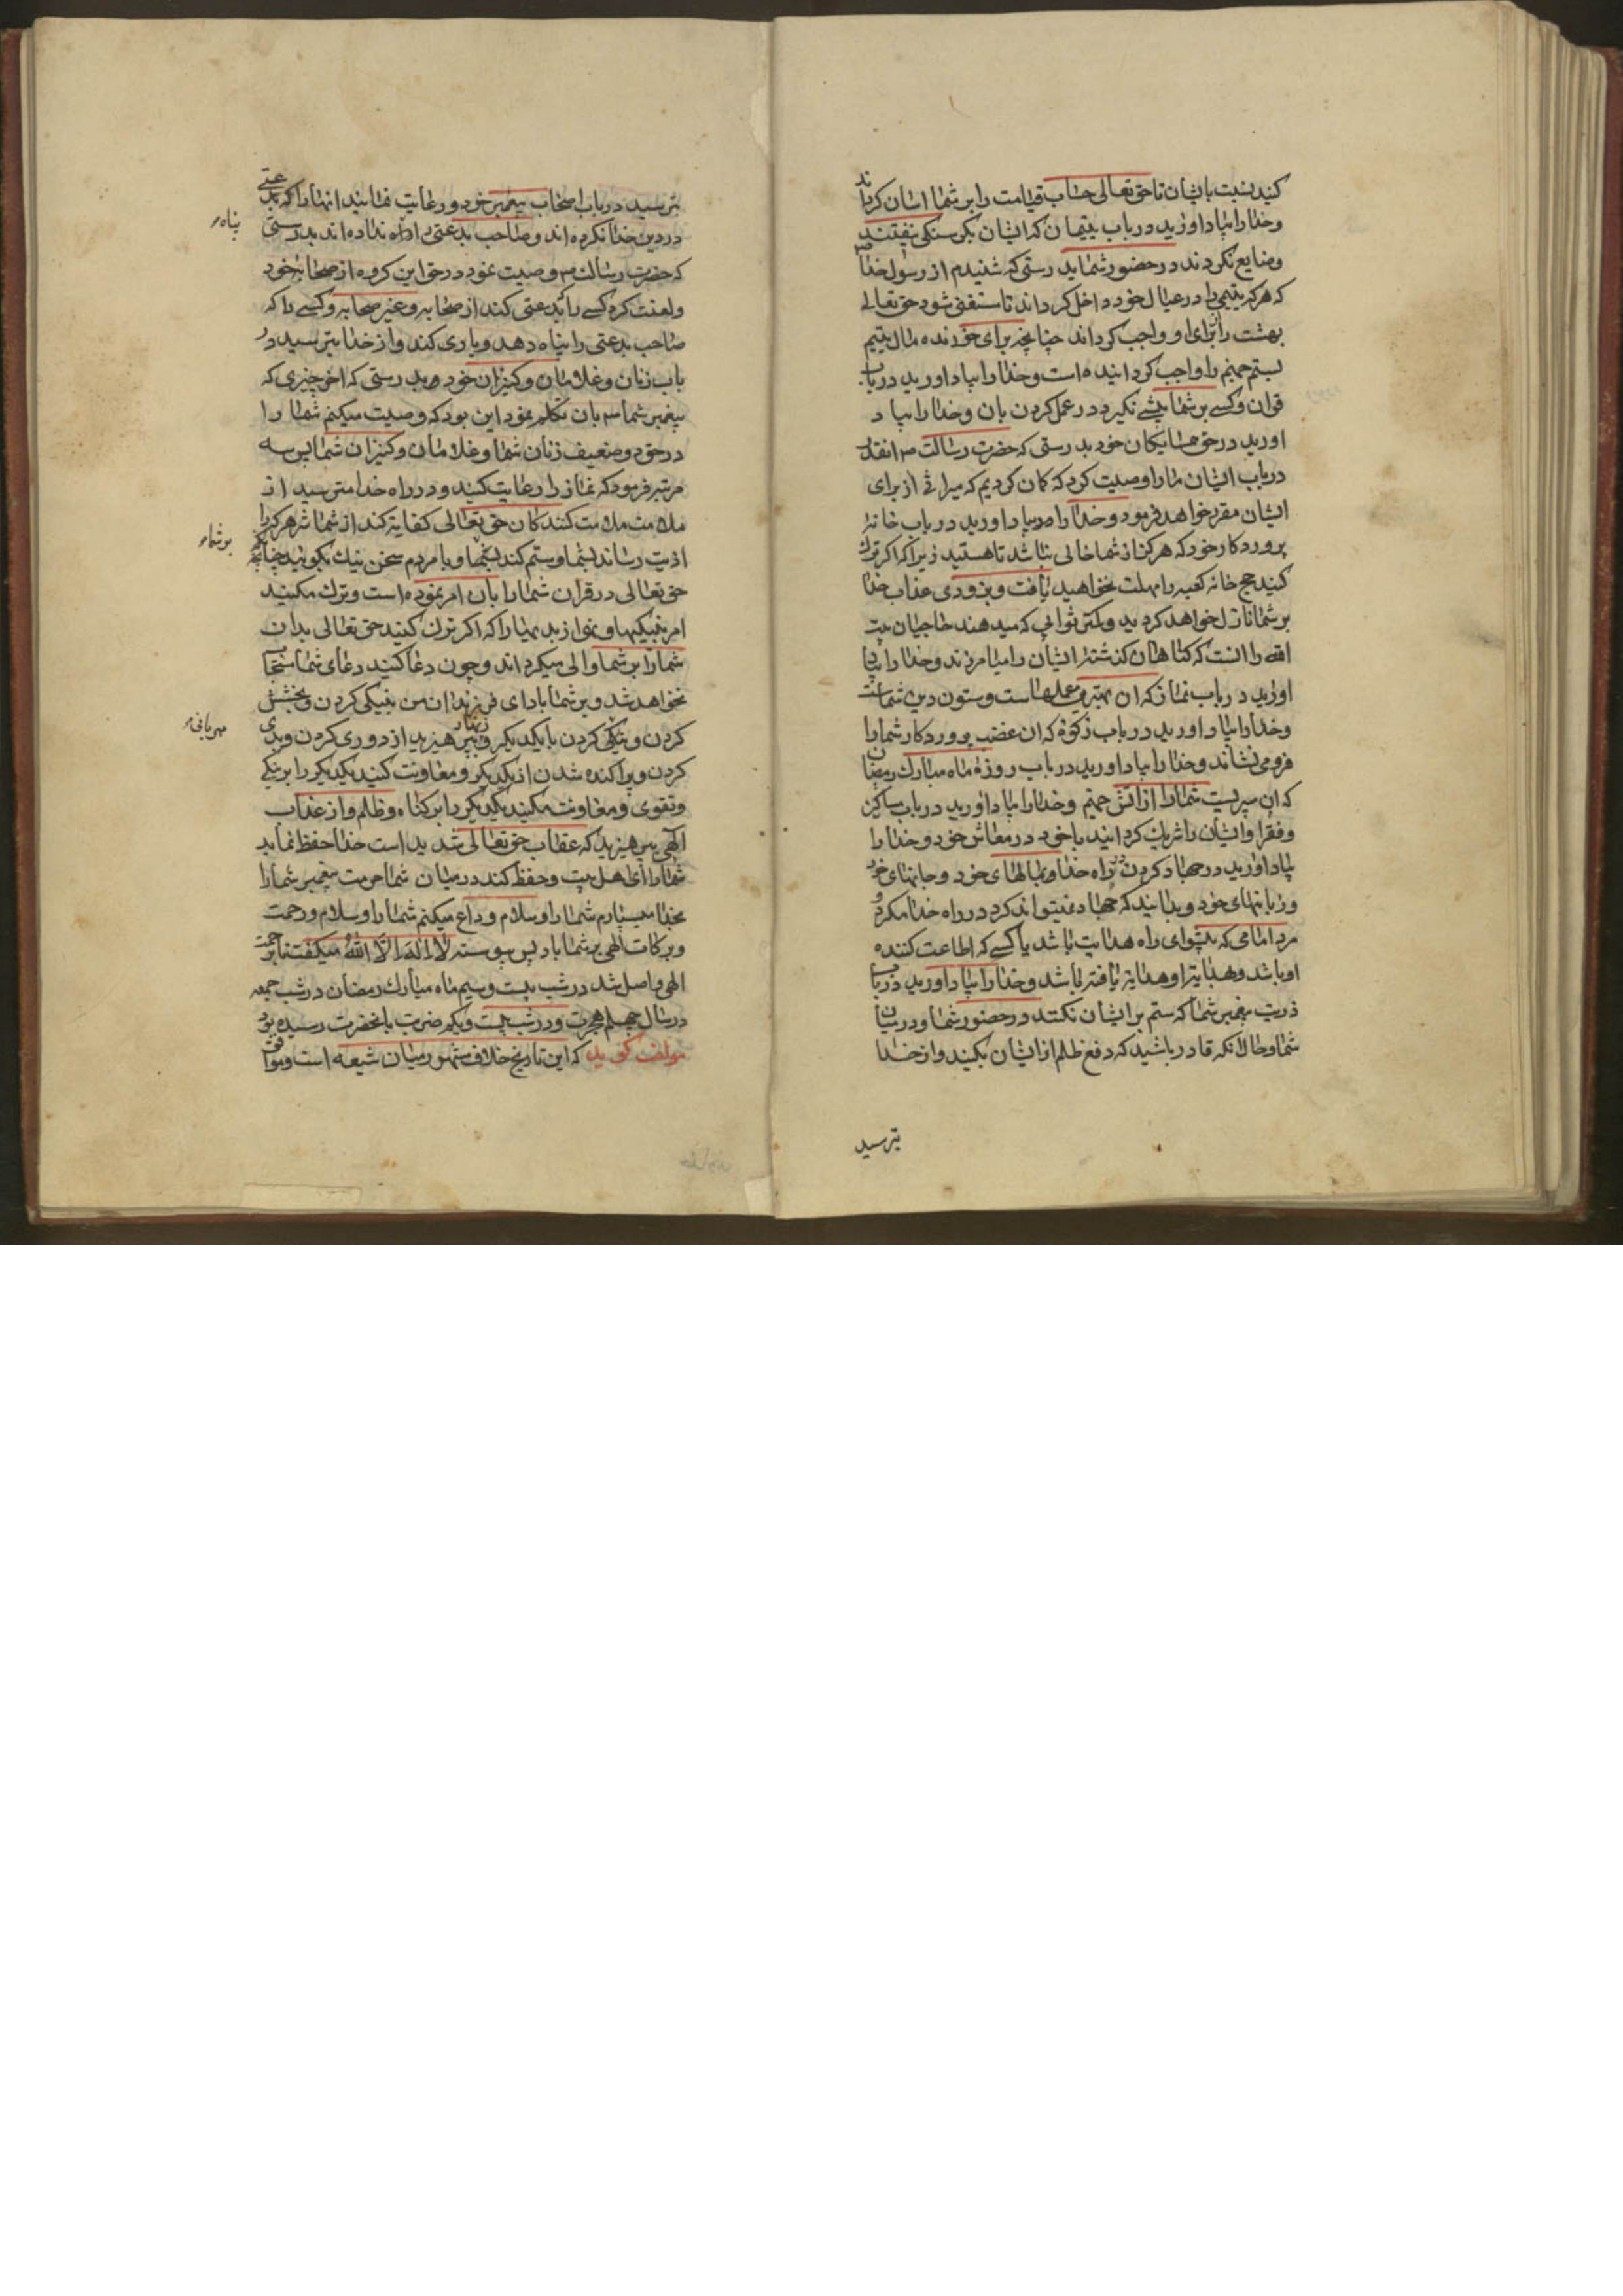 کنید نسبت بایشان تا حق تعالی حساب قیامت را بر شما اسان کرداند
وخدا را بیاد اورید در باب یتیمان که ایشان بکرسنکی نیفتند
وضایع نکردند در حضور شما بدرستی که شنیدم از رسول خدا ص
که هر که یتیمی را در عیال خود داخل کرداند تا مستغنی شود حق تعالی
بهشت را برای او واجب کرداند چنانچه برای خورنده مال یتیم
جهنم را واجب کردانیده است وخدا را بیاد اورید در باب
قران وکسی بر شما پیشی نکیرد در عمل کردن بان وخدا را بیاد
اورید در حق همسایکان خود بدرستی که حضرت رسالت ص انقدر
در باب ایشان ما را وصیت کرد که کمان کردیم که میراثی از برای
ایشان مقرر خواهد فرمود وخدا را بیاد اورید در باب خانهٔ
پروردکار خود که هرکز از شما خالی نباشد تا هستید زیرا که اکر ترک
کنید حج خانه کعبه را مهلت نخواهید یافت وبزودی عذاب خدا
بر شما نازل خواهد کردید وکمتر ثوابی که میدهند حاجیان بیت
الله را انست که کناهان کذشته ایشان را میامرزند وخدا را بیاد
اورید در باب نماز که ان بهترین عملهاست وستون دین شماست
وخدا را بیاد اورید در باب زکوة که ان غضب پروردکار شما را
فرو می نشاند وخدا را بیاد اورید در باب روزهٔ ماه مبارک رمضان
که ان سپریست شما را از اتش جهنم وخدا را بیاد اورید در باب مساکین
وفقرا وایشان را شریک کردانید با خود در معاش خود وخدا را
بیاد اورید در جهاد کردن در راه خدا وبمالهای خود وجانهای خود
وزبانهای خود وبدانید که جهاد نمیتواند کرد در راه خدا مکر دو
مرد امامی که پیشوای راه هدایت باشد یا کسی که اطاعت کننده
او باشد وبهدایت او هدایت یافته باشد وخدا را بیاد اورید در باب
ذریت پیغمبر شما که ستم بر ایشان نکنند در حضور شما ودر میان
شما وحال انکه قادر باشید که دفع ظلم از ایشان بکنید واز خدا
بترسید
بترسید در باب اصحاب پیغمبر خود ورعایت نمائید انها را که بدعتی
در دین خدا نکرده اند وصاحب بدعتی را نداده اند بدرستی
پناه
که حضرت رسالت ص وصیت نمود در حق این کروه از صحابه خود
ولعنت کرد کسی را که بدعتی کند از صحابه وغیر صحابه وکسی را که
صاحب بدعتی را پناه دهد ویاری کند واز خدا بترسید در
باب زنان وغلامان وکنیزان خود بدرستی که اخر چیزی که
پیغمبر شما ص بان تکلم نمود این بود که وصیت میکنم شما را
در حق دو ضعیف زنان شما وغلامان وکنیزان شما پس سه
مرتبه فرمود که نماز را رعایت کنید ودر راه خدا مترسید از
ملامت ملامت کنندکان حق تعالی کفایة کند از شما شر هر که را
اذیت رساند بشما وستم کند بشما وبا مردم سخن نیک بکوئید چنانچه
بر شما
حق تعالی در قران شما را بان امر نموده است وترک مکنید
امر بنیکیها ونهی از بدیها را که اکر ترک کنید حق تعالی بدان
شما را بر شما والی میکرداند وچون دعا کنید دعای شما مستجاب
نخواهد شد وبر شما باد ای فرزندان من بنیکی کردن وبخشش
کردن ونیکی کردن با یکدیکر وزنهار بپرهیزید از دوری کردن وبدی
مهربانی
کردن وپراکنده شدن از یکدیکر ومعاونت کنید یکدیکر را بر نیکی
وتقوی ومعاونت مکنید یکدیکر را بر کناه وظلم واز عذاب
الهی بپرهیزید که عقاب حق تعالی شدید است خدا حفظ نماید
شما را ای اهل بیت وحفظ کند در میان شما حرمت پیغمبر شما را
بخدا میسپارم شما را وسلام وداع میکنم شما را وسلام ورحمت
وبرکات الهی بر شما باد پس پیوسته لا اله الا الله میکفت تا برحمت
الهی واصل شد در شب بیست وسیم ماه مبارک رمضان در شب جمعه
در سال چهلم هجرت ودر شب بیست ویکم ضربت بانحضرت رسیده بود
مولف کوید که این تاریخ خلاف مشهور میان شیعه است وموافق